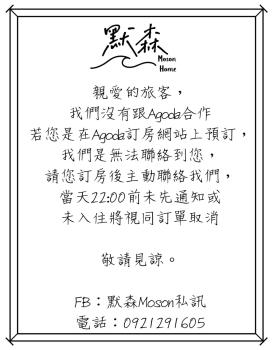 默森
Moson
Home
親愛的旅客，
我們沒有跟Agoda合作
若您是在Agoda訂房網站上預訂，
我們是無法聯絡到您，
請您訂房後主動聯絡我們，
當天22:00前未先通知或
未入住將視同訂單取消
敬請見諒。
FB：默森Moson私訊
電話：0921291605